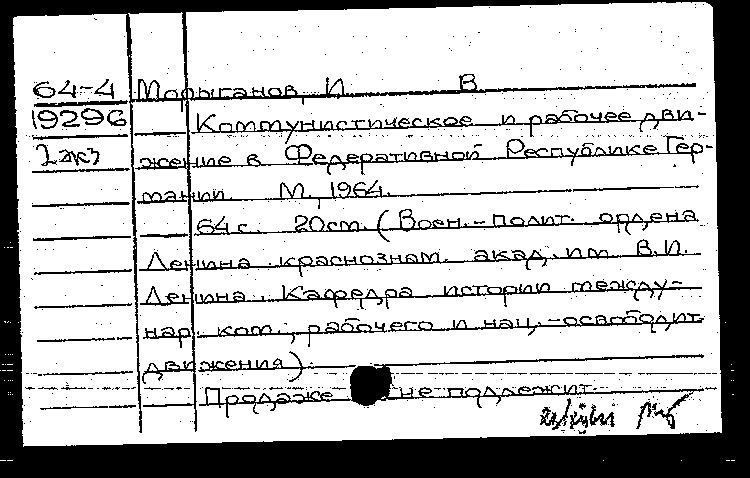 64-4 Морыганов, И. В.
19296 Коммунистическое и рабочее дви-
2 экз жение в Федеративной Республике Гер-
мании. М., 1964.
64 с. 20 см. (Воен.-полит. ордена
Ленина краснознам. акад. им. В.И.
Ленина. Кафедра истории между-
нар. ком., рабочего и нац.-освободит.
движения).
Продаже не подлежит.